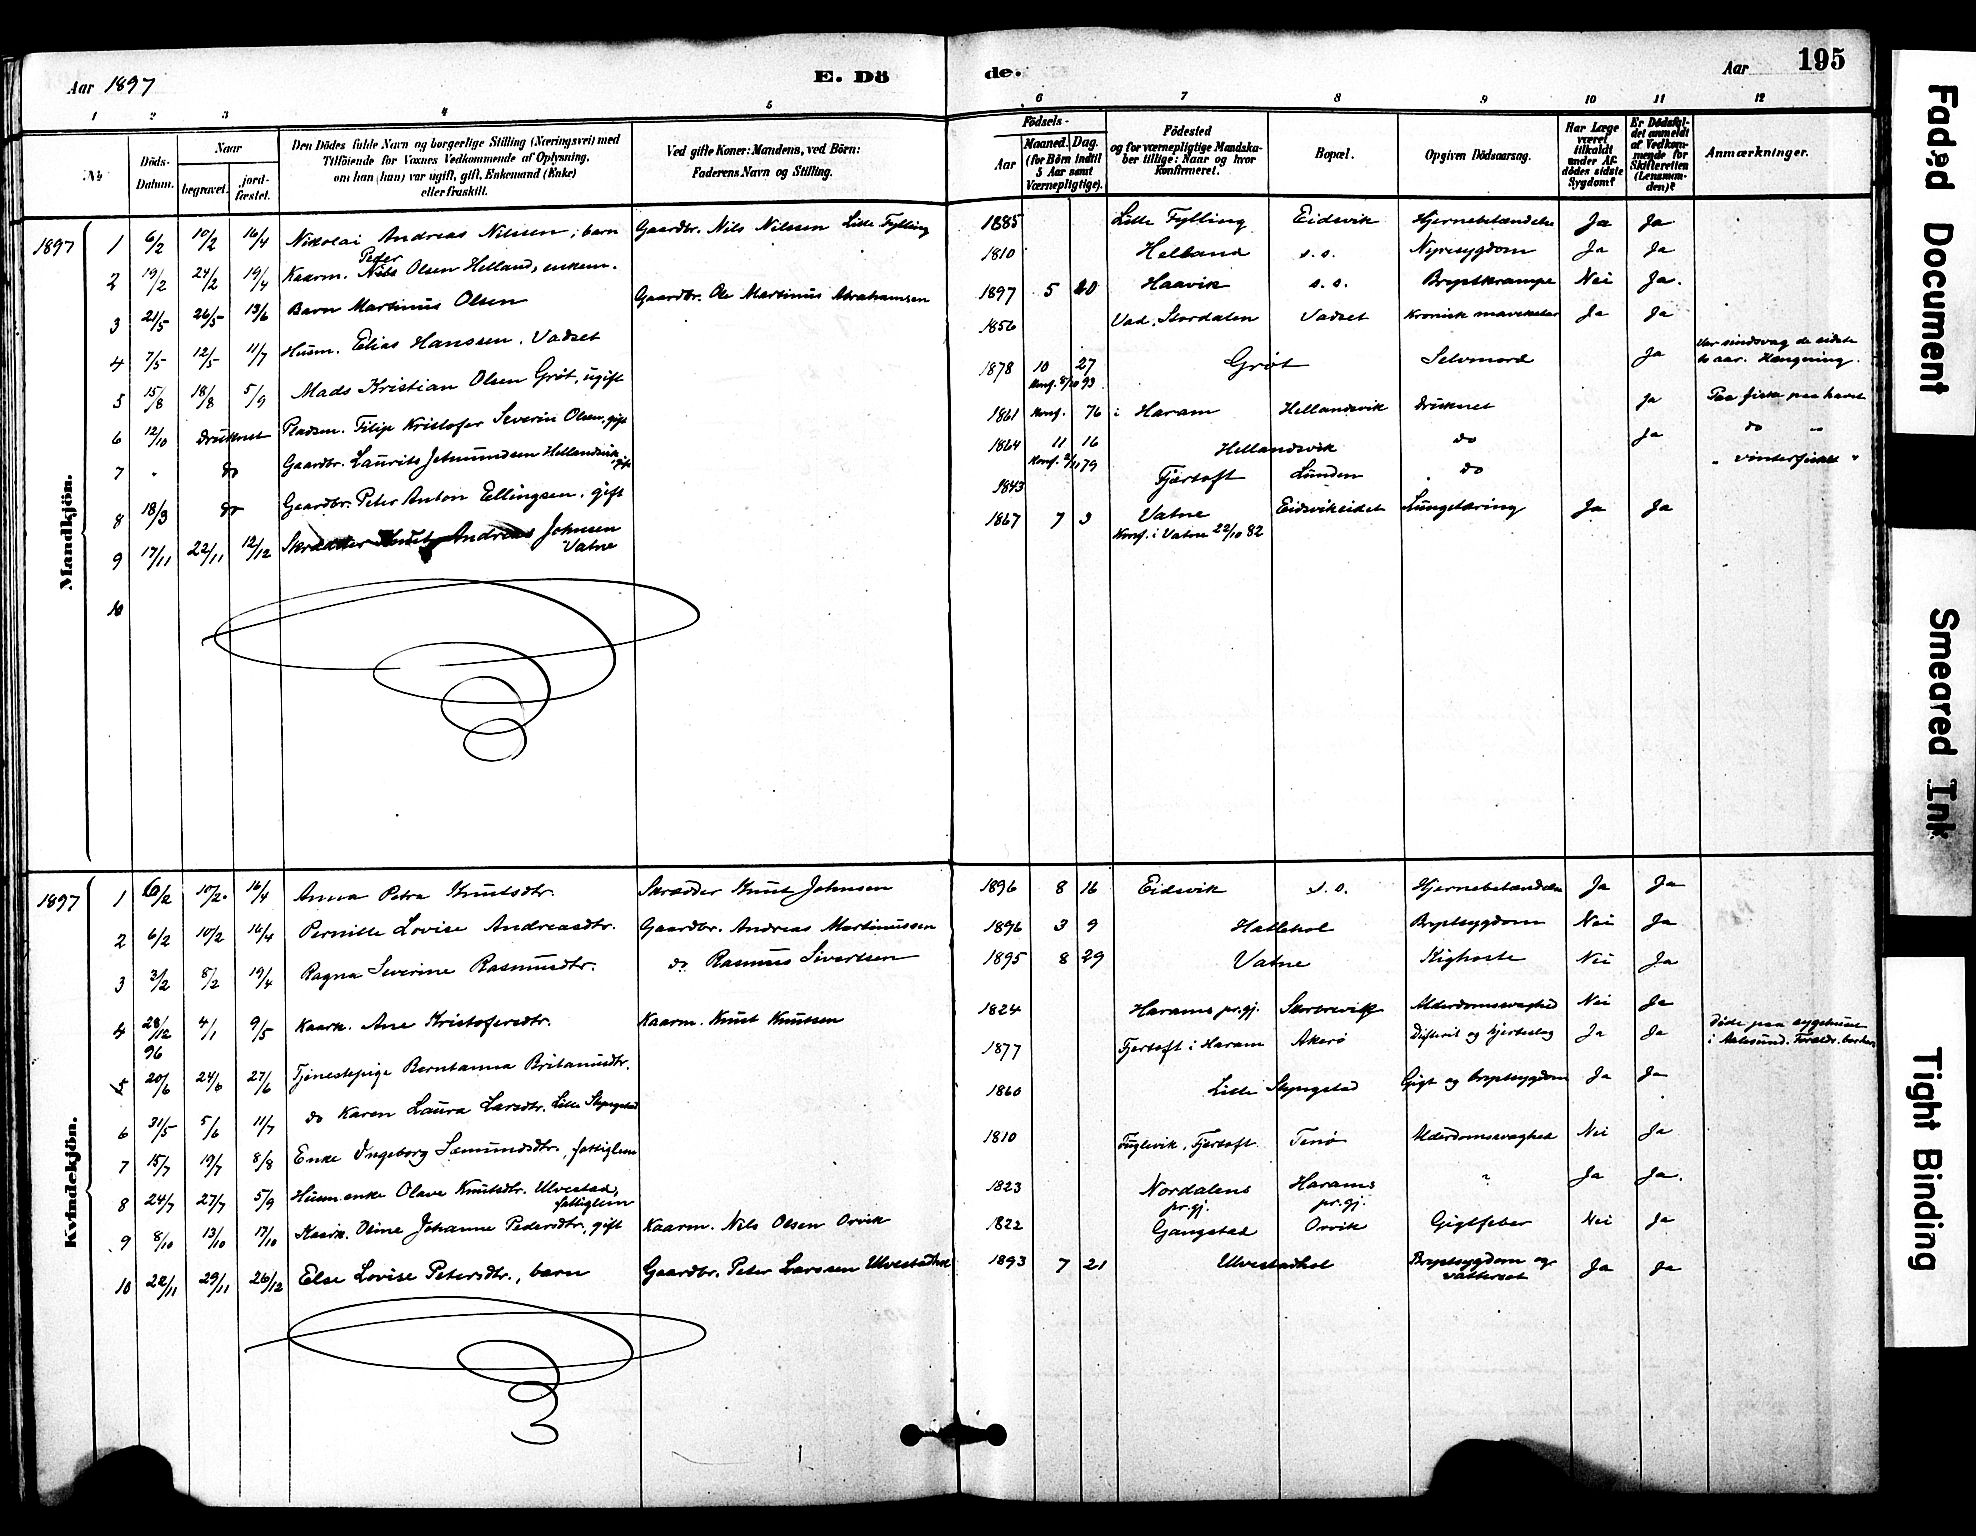 Aar 1897 E. Dö de. Aar 195
1 2 3 4 5 6 7 8 9 10 11 12
No
Döds-Datum.
Naar
begravet.
jord-fæstet.
Den Dödes fulde Navn og borgerlige Stilling (Næringsvei) med
Tilföiende for Voxnes Vedkommende af Oplysning,
om han (hun) var ugift, gift, Enkemand (Enke)
eller fraskilt.
Ved gifte Koner: Mandens, ved Börn:
Faderens Navn og Stilling.
Födsels-
Aar
Maaned. Dag.
(for Börn indtil
5 Aar samt
Værnepligtige).
Födested
og for værnepligtige Mandska-
ber tillige: Naar og hvor
konfirmeret.
Bopæl.
Opgiven Dödsaarsag.
Har Læge
været
tilkaldt
under Af-
dödes sidste
Sygdom?
Er Dödsfal-
det anmeldt
af Vedkom-
mende for
Skifteretten
(Lensman-
den)?
Anmærkninger.
Mandkjön.
1897 1 6/2 10/2 16/4 Nikolai Andreas Nilssen, barn Gaardbr. Nils Nilssen Lille Fylling 1885 Lille Fylling Eidsvik Hjernebetændelse Ja Ja
2 19/2 24/2 19/4 Kaarm. Peter Nils Olsen Helland, enkem. 1810 Helland s.s. Nyresygdom Ja Ja
3 21/5 26/5 13/6 Barn Martinus Olsen Gaardbr. Ole Martinus Abrahamsen 1897 5 10 Haavik s.s. Brystkrampe Nei Ja.
4 7/5 12/5 11/7 Husm. Elias Hanssen, Vadset 1856 Vad, Stordalen Vadset Kronisk Ja Ja
5 15/8 18/8 5/9 Mads Kristian Olsen Gröt, ugift 1878 10 27 Gröt Selvmord Ja Var sindssvag de sidste
Konf. 8/10 93 to aar. Hængning.
6 12/10 druknet Pladsm. Filip Kristofer Severin Olsen, gift 1861 Konf. 76 i Haram Hellandsvik Druknet Ja Paa fiske paa havet
7 " do Gaardbr. Laurits Jetmundsen Hellandsvik, gift 1864 11 16 Hellandsvik do Ja do "
Konf. 2/11 79
8 18/3 do Gaardbr. Peter Anton Ellingsen, gift 1843 Fjærtoft Lunden do " vinterfisket "
9 17/11 22/11 12/12 Skrædder Knut Andreas Johnsen 1867 7 3 Vatne Eidsvikeidet Lungetæring Ja Ja
Vatne Konf. i Vatne 22/10 82
10
Kvindekjön.
1897 1 6/2 10/2. 16/4 Anna Petra Knutsdtr. Skrædder Knut Johnsen 1896 8 16 Eidsvik s.s. Hjernebetændelse Ja Ja
2 6/2 10/2 16/4 Pernille Lovise Andreasdtr. Gaardbr. Andreas Martinussen 1896 3 9 Hatlehol Brystsygdom Nei Ja
3 3/2 8/2 19/4 Ragna Severine Rasmusdtr. do Rasmus Sivertsen 1895 8 29 Vatne Kighoste Nei Ja
4 28/12 96 4/1 9/5 Kaark. Ane Kristofersdtr. Kaarm. Knut Knutsen 1824 Harams pr.gj. Alderdomssvaghed Nei Ja
5 20/6 24/6 27/6 Tjenestepige Berntanna Britanusdtr. 1877 Fjertoft i Haram Akerö Difterit og hjerteslag Ja Ja Döde paa sygehuset
i Aalesund.
6 31/5 5/6 11/7 do Karen Laura Larsdtr. Lille Skyngstad 1860 Lille Skyngstad Gigt og brystsygdom Ja Ja
7 15/7 19/7 8/8 Enke Ingeborg Samundsdtr., fattiglem 1810 Fuglevik, Fjertoft Tenö Alderdomssvaghed Nei Ja
8 24/7 27/7 5/9 Husm.enke Olave Knutsdtr. Ulvestad, 1823 Nordalens Harams " Ja Ja.
fattiglem pr.gj. pr.gj.
9 8/10 13/10 17/10 Kaark. Oline Johanne Pedersdtr., gift Kaarm. Nils Olsen Orvik 1822 Gangstad Orvik Gigtfeber Nei Ja
10 22/11 29/11 26/12 Else Lovise Petersdtr., barn Gaardbr. Peter Larssen Ulvestadhol 1893 7 21 Ulvestadhol Brystsygdom og Ja Ja
vattersot
Faded Document
Smeared Ink
Tight Binding